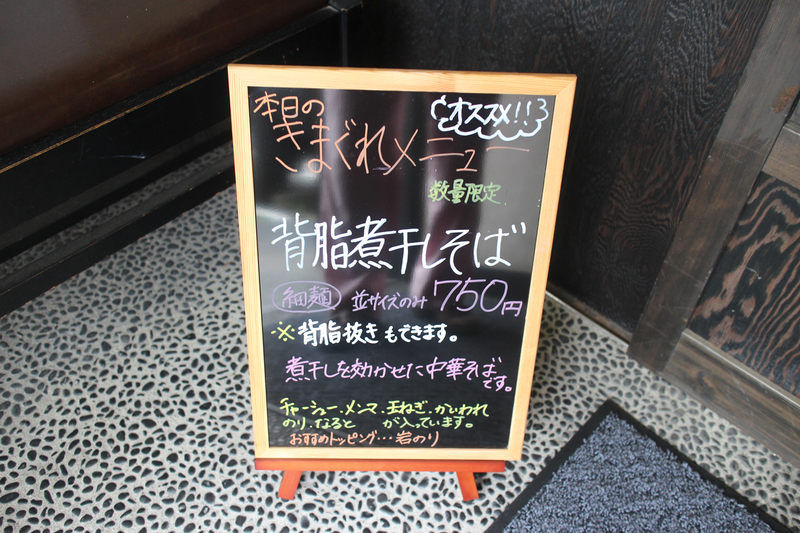 本日の
オススメ!!
きまぐれメニュー
数量限定
背脂煮干しそば
細麺 並サイズのみ 750円
※背脂抜きもできます。
煮干しを効かせた中華そば
です。
チャーシュー.メンマ.玉ねぎ.かいわれ
のり.なると が入っています。
おすすめトッピング…岩のり